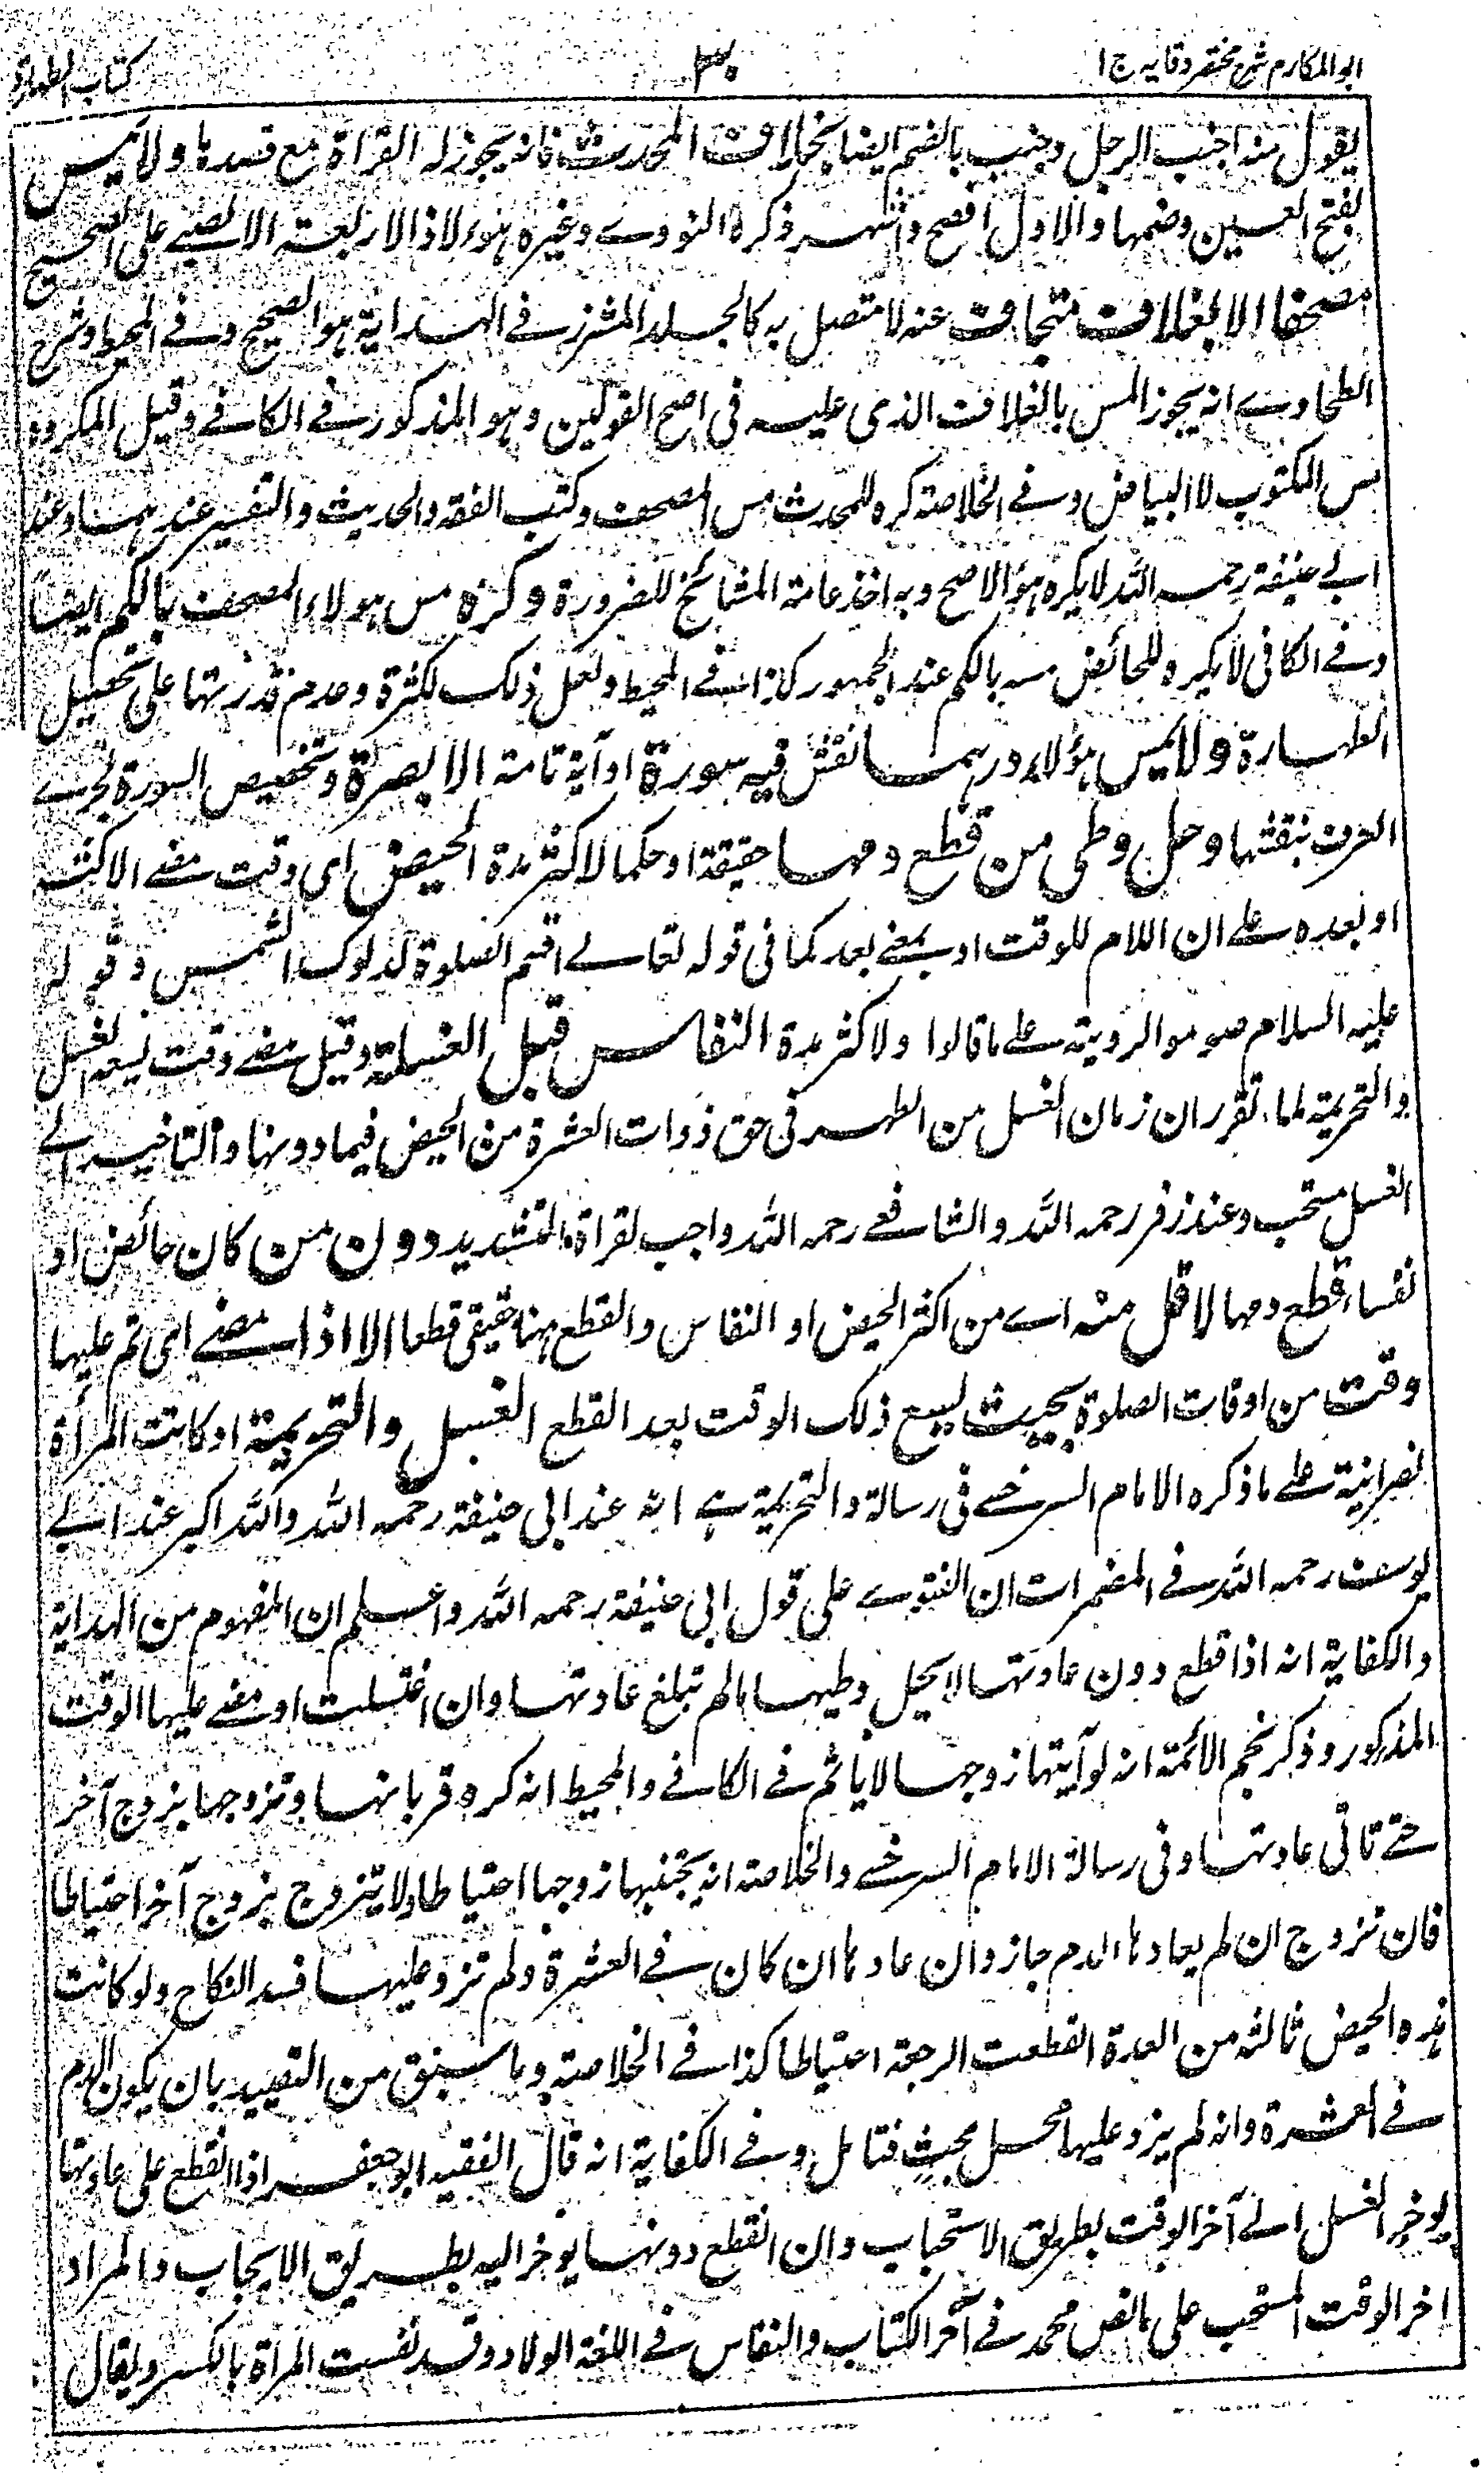 ابو المکارم شرح مختصر وقایه ج ۱
۳۰
کتاب الطهارة
یقول منه اجنب الرجل وجنب بالضم ایضا بخلاف المحدث فانه یجوز له القراة مع قسدها ولا یمس
بفتح العین وضمها والاول افصح واشهر ذکره النووے وغیره هؤلاء الاربعة الا لصبے علی الصحیح
مصحفا الا بغلاف متجاف عنه لا متصل به کالجلد المشرز فے الهدایة هو الصحیح وفے المحیط وشرح
الطحاوے انه یجوز المس بالغلاف الذی علیه فی اصح القولین وهو المذکور فے الکافے وقیل المکروه
مس المکتوب لا البیاض وفے الخلاصة کره للمحدث مس المصحف وکتب الفقه والحدیث والتفسیر عندهما وعند
ابے حنیفة رحمه الله لا یکره هو الاصح وبه اخذ عامة المشائخ للضرورة وکره مس هولاء المصحف بالکم ایضاً
وفے الکافی لا یکره للحائض مسه بالکم عند الجمهور کذا فے المحیط ولعل ذلک لکثرة وعدم قدرتها علی تحصیل
الطهارة ولا یمس هؤلاء درهما نقش فیه سورة او آیة تامة الا بصرة وتخصیص السورة لجرے
العرف بنقشها وحل وطی من قطع دمها حقیقة او حکما لاکثر مدة الحیض ای وقت مضے الاکثر
او بعده علے ان اللام للوقت او بمعنے بعد کما فی قوله تعالے اقم الصلوة لدلوک الشمس وقوله
علیه السلام صوموا لرویته علے ما قالوا ولاکثر مدة النفاس قبل الغسل وقیل مضے وقت یسع الغسل
والتحریمة لما تقرر ان زمان الغسل من الطهر فی حق ذوات العشرة من الحیض فیما دونها والتاخیر الے
الغسل مستحب وعند زفر رحمه الله والشافعے رحمه الله واجب لقراة التشدید دون من کان حائض او
نفساء قطع دمها لاقل منه اے من اکثر الحیض او النفاس والقطع هنا حقیقی قطعا الا اذا مضے ای تم علیها
وقت من اوقات الصلوة بحیث یسع ذلک الوقت بعد القطع الغسل والتحریمة او کانت المرأة
نصرانیة علے ما ذکره الامام السرخسے فی رسالة والتحریمة هے الله عند ابی حنیفة رحمه الله والله اکبر عند ابے
یوسف رحمه الله فے المضمرات ان الفتوے علی قول ابی حنیفة رحمه الله واعلم ان المفهوم من الهدایة
والکفایة انه اذا قطع دون عادتها لا یحل وطیها ما لم تبلغ عادتها وان اغتسلت او مضے علیها الوقت
المذکور وذکر نجم الائمة انه لو آیتها زوجها لا یاثم فے الکافے والمحیط انه کره قربانها وتزوجها بزوج آخر
حتے تاتی عادتها وفی رسالة الامام السرخسے والخلاصة انه یجتنبها زوجها احتیاطا ولا یتزوج بزوج آخر احتیاطا
فان تزوج ان لم یعادها الدم جاز وان عادها ان کان فے العشرة ولم تزد علیها فسد النکاح ولو کانت
هذه الحیض ثالثه من العدة انقطعت الرجعة احتیاطا کذا فے الخلاصة وما سبق من التقیید بان یکون الدم
فے العشرة وانه لم یزد علیها محل بحث فتامل وفے الکفایة انه قال الفقیه ابو جعفر اذا انقطع علی عادتها
یوخر الغسل الے آخر الوقت بطریق الاستحباب وان انقطع دونها یوخر الیه بطریق الایجاب والمراد
اخر الوقت المستحب علی ما نص محمد فے آخر الکتاب والنفاس فے اللغة الولاد وقد نفست المرأة بالکسر ویقال